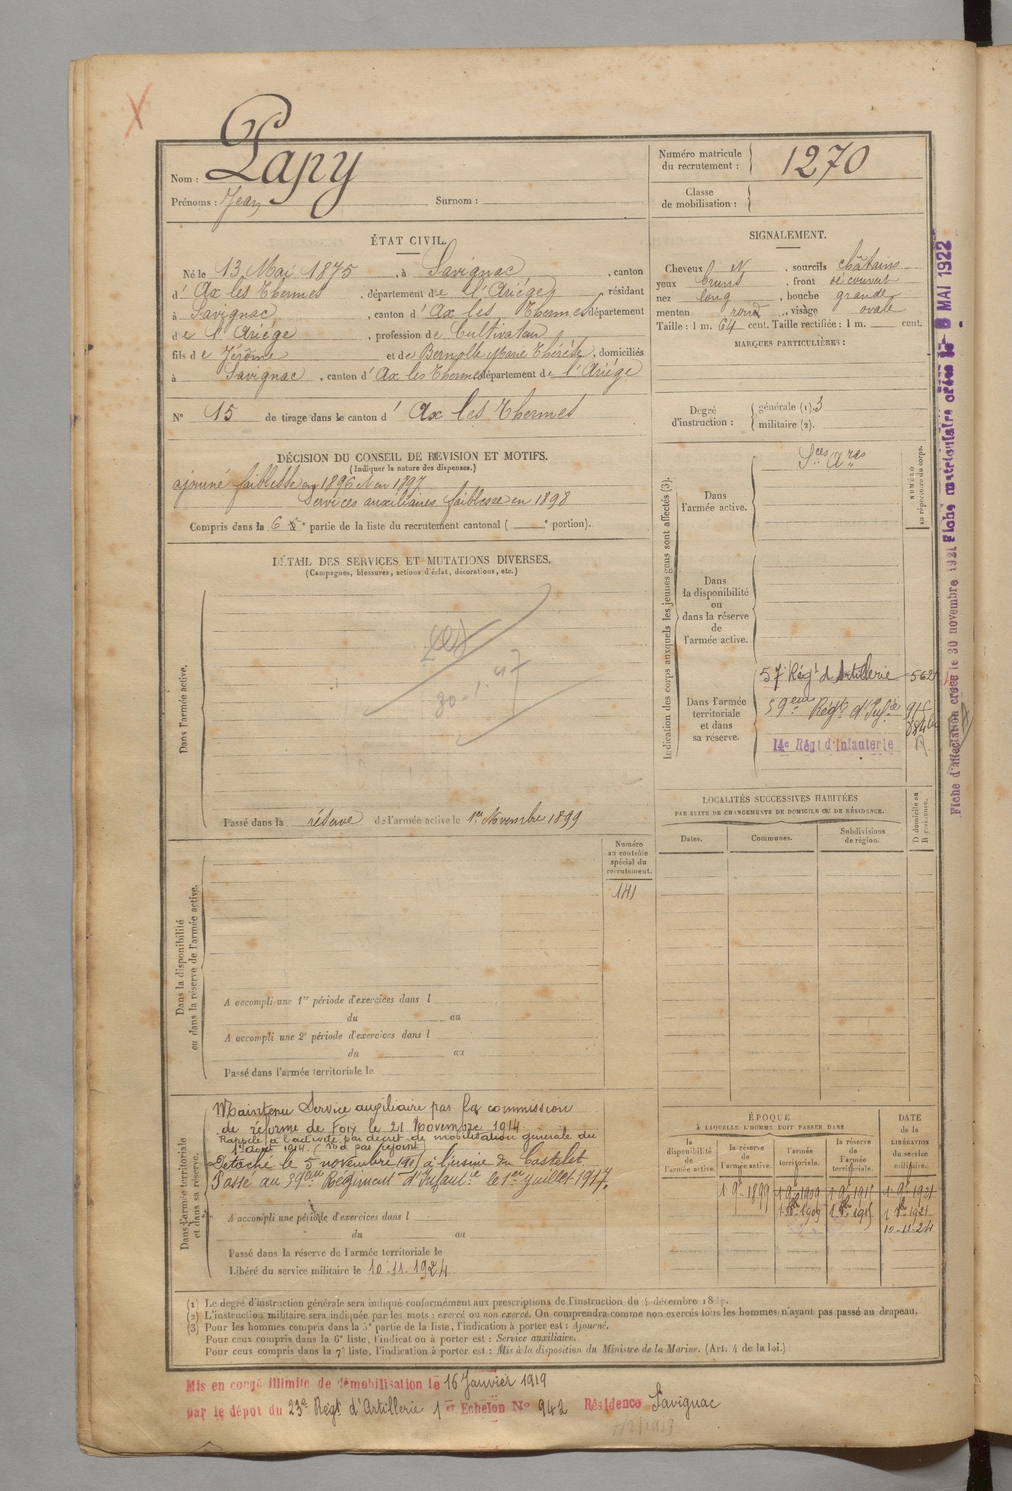 X
Nom : Papy
Prénoms : Jean Surnom :
Numéro matricule du recrutement : 1270
Classe de mobilisation :
ÉTAT CIVIL.
Né le 13 Mai 1875, à Savignac, canton
d' Ax les Thermes, département de l'Ariége, résidant
à Savignac, canton d' Ax les Thermes département
de l'Ariége, profession de Cultivateur
fils de Jérôme et de Bernolle Marie Thérèse, domiciliés
à Savignac, canton d' Ax les Thermes département de l'Ariége
N° 15 de tirage dans le canton d' Ax les Thermes
SIGNALEMENT.
Cheveux N, sourcils châtains
yeux bruns, front découvert
nez long, bouche grande
menton rond, visage ovale
Taille : 1 m. 64 cent. Taille rectifiée : 1 m. cent.
MARQUES PARTICULIÈRES :
Degré d'instruction : générale (1). 3
militaire (2).
DÉCISION DU CONSEIL DE REVISION ET MOTIFS.
(Indiquer la nature des dispenses.)
ajourné faiblesse en 1896 et en 1897
Services auxiliaires faiblesse en 1898
Compris dans la 6 e partie de la liste du recrutement cantonal ( e portion).
DÉTAIL DES SERVICES ET MUTATIONS DIVERSES.
(Campagnes, blessures, actions d'éclat, décorations, etc.)
Dans l'armée active.
Passé dans la réserve de l'armée active le 1er Novembre 1899
Indication des corps auxquels les jeunes gens sont affectés (3).
NUMÉRO au répertoire du corps.
Dans l'armée active.
Sces Ares
Dans la disponibilité ou dans la réserve de l'armée active.
Dans l'armée territoriale et dans sa réserve.
57 Régt d'Artillerie 562
59eme Régt d'Infie
14e Régt d'Infanterie
LOCALITÉS SUCCESSIVES HABITÉES
PAR SUITE DE CHANGEMENTS DE DOMICILE OU DE RÉSIDENCE.
Dates. Communes. Subdivisions de région. D domicile ou R résidence.
Dans la disponibilité ou dans la réserve de l'armée active.
Numéro au contrôle spécial du recrutement.
141
A accompli une 1re période d'exercices dans l
du au
A accompli une 2e période d'exercices dans l
du au
Passé dans l'armée territoriale le
Dans l'armée territoriale et dans sa réserve.
Maintenu Service auxiliaire par la commission
de réforme de Foix le 21 Novembre 1914.
Rappelé à l'activité par décret de mobilisation générale du
1er août 1914. (n'a pas rejoint)
Détaché le 5 novembre 191 à l'usine du Castelet
Passé au 59eme Régiment d'Infantie le 1er juillet 1917.
A accompli une période d'exercices dans l
du au
Passé dans la réserve de l'armée territoriale le
Libéré du service militaire le 10-11-1924
ÉPOQUE
À LAQUELLE L'HOMME DOIT PASSER DANS
la disponibilité de l'armée active. la réserve de l'armée active. l'armée territoriale. la réserve de l'armée territoriale.
DATE de la LIBÉRATION du service militaire.
10-11-24
(1) Le degré d'instruction générale sera indiqué conformément aux prescriptions de l'instruction du 4 décembre 18
(2) L'instruction militaire sera indiquée par les mots : exercé ou non exercé. On comprendra comme non exercés tous les hommes n'ayant pas passé au drapeau.
(3) Pour les hommes compris dans la 5e partie de la liste, l'indication à porter est : Ajourné.
Pour ceux compris dans la 6e liste, l'indication à porter est : Service auxiliaire.
Pour ceux compris dans la 7e liste, l'indication à porter est : Mis à la disposition du Ministre de la Marine. (Art. 4 de la loi.)
Mis en congé illimité de démobilisation le 16 Janvier 1919
par le dépôt du 23e Régt d'Artillerie 1er Echelon N° 942 Résidence Savignac
Fiche d'affectation créée le 30 novembre 1921
Fiche matriculaire créée le 8 MAI 1922